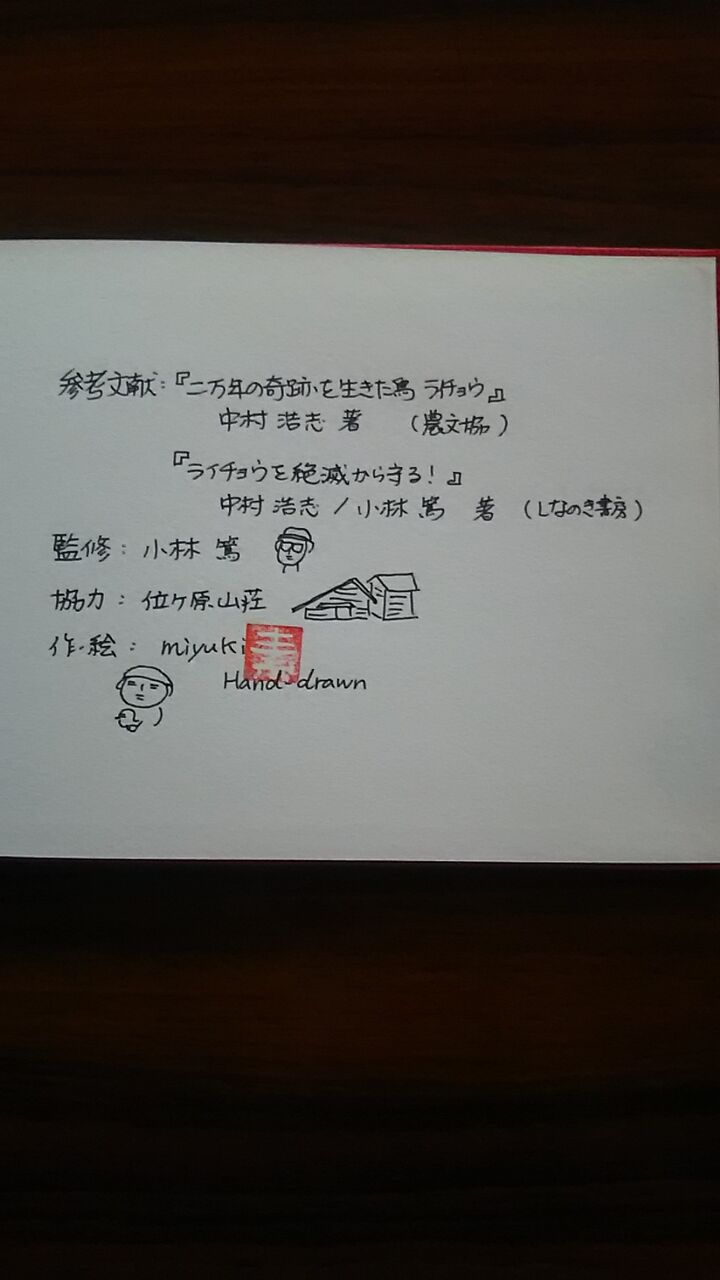 参考文献：『二万年の奇跡を生きた鳥 ライチョウ』
中村 浩志 著 （農文協）
『ライチョウを絶滅から守る！』
中村 浩志／小林 篤 著 （しなのき書房）
監修：小林 篤
協力：位ヶ原山荘
作・絵：miyuki
Hand-drawn